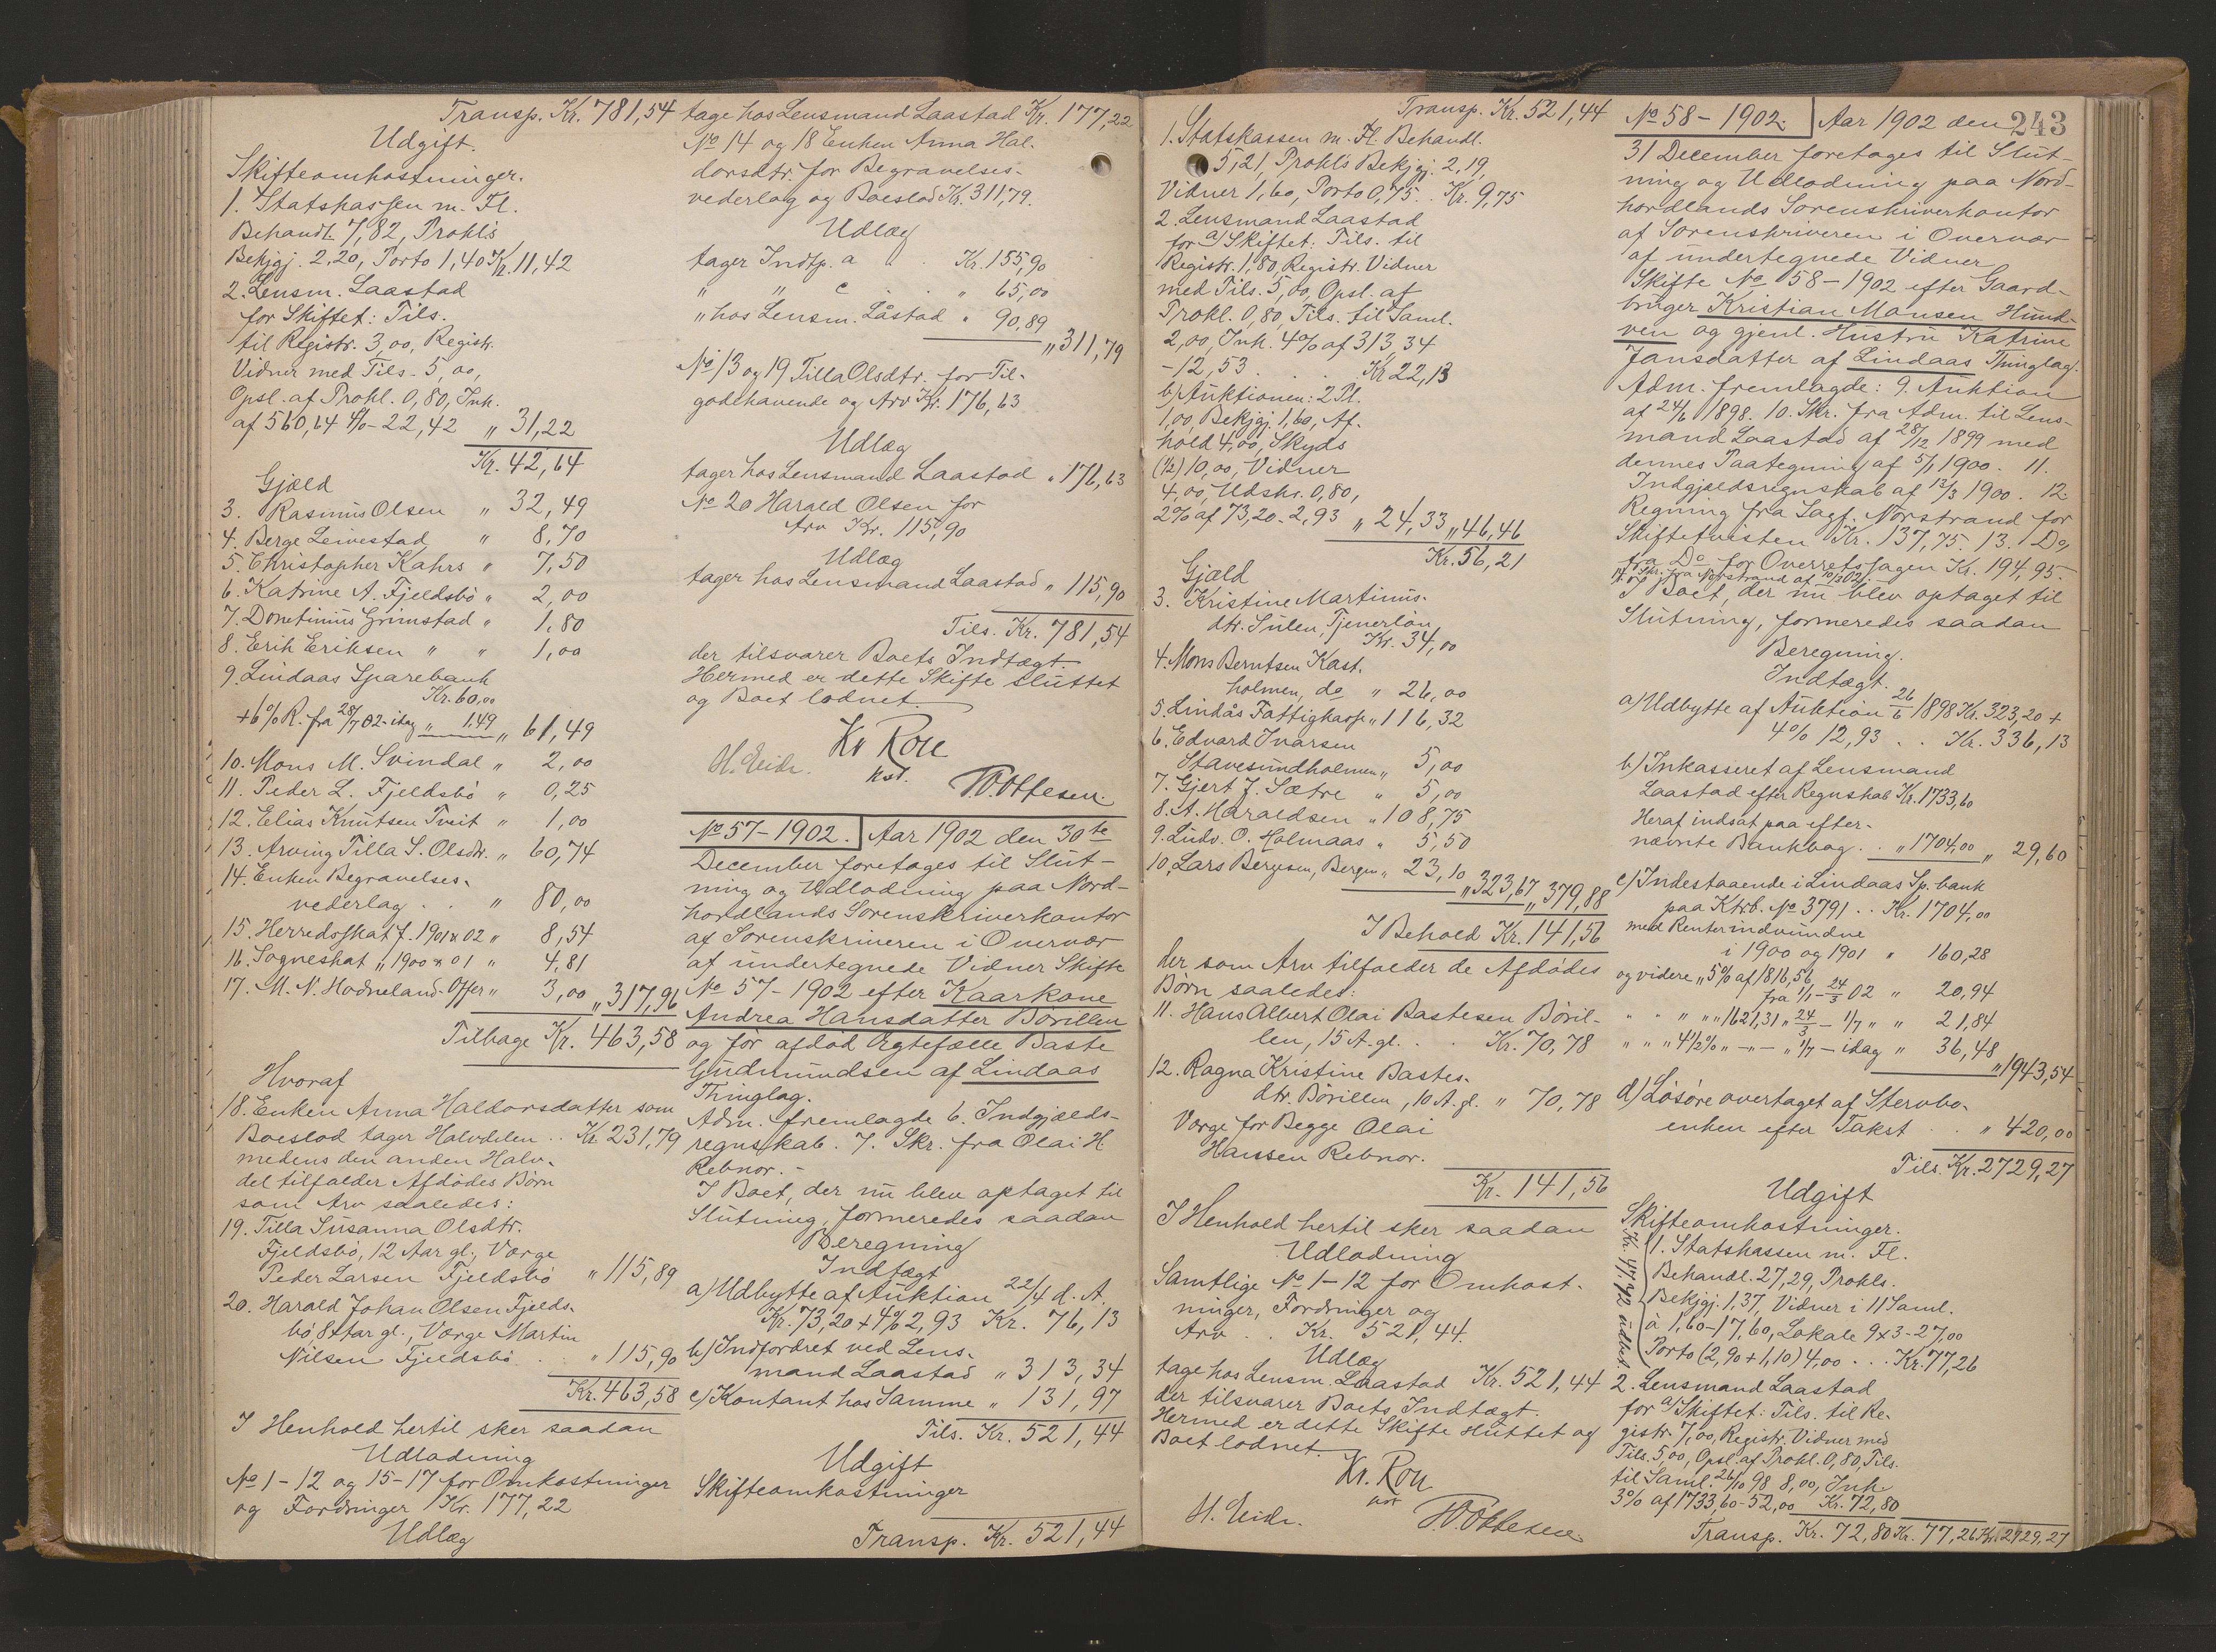 Transp. Kr. 781,54
Udgift.
Skifteomkostninger.
1. Statskassen m. Fl.
Behandl. 7,82, Prokls
Bekjgj. 2,20, Porto 1,40 Kr. 11,42
2. Lensm. Laastad
for Skiftet: Tils.
til Registr. 3,00, Registr.
Vidner med Tils. 5,00,
Opsl. af Prokl. 0,80, Ink.
af 560,64 4% - 22,42 „ 31,22
Kr. 42,64
Gjæld
3. Rasmus Olsen „ 32,49
4. Berge Levestad „ 8,70
5. Christopher Kahrs „ 7,50
6. Katrine A. Fjeldsbö „ 2,00
7. Donetinus Grimstad „ 1,80
8. Erik Eriksen „ „ 1,00
9. Lindaas Sparebank
Kr. 60,00
+ 6% R. fra 28/7 02 - idag „ 1.49 „ 61,49
10. Mons M. Svindal „ 2,00
11. Peder L. Fjeldsbö „ 0,25
12. Elias Knutsen Tveit „ 1,00
13. Arving Tilla S. Olsdtr. „ 60,74
14. Enken Begravelses-
vederlag . . „ 80,00
15. Herredsskat f. 1901 x 02 „ 8,54
16. Sogneskat „ 1900 x 01 „ 4,81
17. M. N. Hodneland Offer „ 3,00 „ 317,96
Tilbage Kr. 463,58
Hvoraf
18. Enken Anna Haldorsdatter som
Boeslod tager Halvdelen . . Kr. 231,79
medens den anden Halv-
del tilfalder Afdödes Börn
som Arv saaledes:
19. Tilla Susanna Olsdtr.
Fjeldsbö, 12 Aar gl., Værge
Peder Larsen Fjeldsbö „ 115,89
20. Harald Johan Olsen Fjelds-
bö 8 Aar gl., Værge Martin
Nilsen Fjeldsbö . . „ 115,90
Kr. 463,58
I Henhold hertil sker saadan
Udlodning
No 1 - 12 og 15 - 17 for Omkostninger
og Fordringer Kr. 177,22
Udlæg
tage hos Lensmand Laastad Kr. 177,22
No 14 og 18 Enken Anna Hal-
dorsdtr. for Begravelses-
vederlag og Boeslod Kr. 311,79.
Udlæg
tager Indtp. a . . Kr. 155,90
„ „ c . . „ 65,00
„ hos Lensm. Låstad „ 90,89
„ 311,79
No 13 og 19 Tilla Olsdtr. for Til-
godehavende og Arv Kr. 176,63
Udlæg
tager hos Lensmand Laastad „ 176,63
No 20 Harald Olsen for
Arv Kr. 115,90
Udlæg
tager hos Lensmand Laastad „ 115,90
Tils. Kr. 781,54
der tilsvarer Boets Indtægt.
Hermed er dette Skifte sluttet
og Boet lodnet.
Kr Roll
H. Eide. kst.
W. Ottesen.
No 57 - 1902. Aar 1902 den 30te
December foretages til Slut-
ning og Udlodning paa Nord-
hordlands Sorenskriverkontor
af Sorenskriveren i Overvær
af undertegnede Vidner Skifte
No 57 - 1902 efter Kaarkone
Andrea Hansdatter Börillen
og för afdöd Ægtefælle Baste
Gudmundsen af Lindaas
Thinglag.
Adm. fremlagde 6. Indgjælds-
regnskab. 7. Skr. fra Olai H.
Rebnor. -
I Boet, der nu blev optaget til
Slutning, formeredes saadan
Beregning
Indtægt
a) Udbytte af Auktion 22/4 d. A.
Kr. 73,20 + 4% 2,93 Kr. 76,13
b) Indfordret ved Lens-
mand Laastad „ 313,34
c) Kontant hos Samme „ 131,97
Tils. Kr. 521,44
Udgift
Skifteomkostninger
Transp. Kr. 521,44
Transp. Kr. 521,44
1. Statskassen m. Fl. Behandl.
5,21, Prokls Bekjgj. 2,19,
Vidner 1,60, Porto 0,75 . . Kr. 9,75
2. Lensmand Laastad
for a) Skiftet: Tils. til
Registr. 1,80, Registr. Vidner
med Tils. 5,00, Opsl. af
Prokl. 0,80, Tils. til Saml.
2,00, Ink. 4% af 313,34
- 12,53 . . . Kr. 22,13
b) Auktionen: 2 Pl.
1,00, Bekjgj. 1,60, Af-
hold 4,00, Skyds
(1/2) 10,00, Vidner
4,00, Udskr. 0,80,
2% af 73,20 - 2,93 „ 24,33 „ 46,46
Kr. 56,21
Gjæld
3. Kristine Martinus-
dtr. Sulen, Tjenerlön
Kr. 34,00
4. Mons Berntsen Kast-
holmen, do „ 26,00
5. Lindås Fattigkasse „ 116,32
6. Edvard Ivarsen
Stavesundholmen „ 5,00
7. Gjert J. Sætre „ 5,00
8. A. Haraldsen „ 108,75
9. Ludv. O. Holmaas „ 5,50
10. Lars Bergesen, Bergen „ 23,10
„ 323,67 „ 379,88
I Behold Kr. 141,56
der som Arv tilfalder de Afdödes
Börn saaledes:
11. Hans Albert Olai Bastesen Böril-
len, 15 A. gl. . . Kr. 70,78
12. Ragna Kristine Bastes-
dtr. Börillen, 10 A. gl. „ 70,78
Værge for Begge Olai
Hanssen Rebnor.
Kr. 141,56
I Henhold hertil sker saadan
Udlodning
Samtlige No 1 - 12 for Omkost-
ninger, Fordringer og
Arv . . Kr. 521,44.
Udlæg
tage hos Lensm. Laastad Kr. 521,44
der tilsvarer Boets Indtægt.
Hermed er dette Skifte sluttet og
Boet lodnet.
Kr. Roll
H. Eide. W. Ottesen
No 58 - 1902. Aar 1902 den 243
31 December foretages til Slut-
ning og Udlodning paa Nord-
hordlands Sorenskriverkontor
af Sorenskriveren i Overvær
af undertegnede Vidner
Skifte No 58 - 1902 efter Gaard-
bruger Kristian Monsen Hund-
ven og gjenl. Hustru Katrine
Jansdatter af Lindaas Thinglag.
Adm. fremlagde: 9. Auktion
af 24/6 1898. 10. Skr. fra Adm. til Lens-
mand Laastad af 28/12 1899 med
dennes Paategning af 5/1 1900. 11.
Indgjældsregnskab af 13/3 1900. 12.
Regning fra Sagf. Norstrand for
Skiftetvisten Kr. 137,75. 13. Do
fra Do for Overretssagen Kr. 194,95.
14. Skr. fra Norstrand af 10/3 02.
I Boet, der nu blev optaget til
Slutning, formeredes saadan
Beregning.
Indtægt.
a) Udbytte af Auktion 26/6 1898 Kr. 323,20 +
4% 12,93 . . Kr. 336,13
b) Inkasseret af Lensmand
Laastad efter Regnskab Kr. 1733,60
Heraf indsat paa efter-
nævnte Bankbog . . „ 1704,00 „ 29,60
c) Indestaaende i Lindaas Sp. bank
paa Ktrb. No 3791 . . Kr. 1704,00
med Renter indvundne
i 1900 og 1901 „ 160,28
og videre „ 5% af 1816,56
fra 1/1 - 24/3 02 „ 20,94
„ „ „ „ 1621,31 „ 24/3 - 1/7 „ „ 21,84
„ „ „ 4 1/2% „ - „ - „ 1/7 - idag „ 36,48
„ 1943,54
d) Lösöre overtaget af Stervbo-
enken efter Takst . . „ 420,00
Tils. Kr. 2729,27
Udgift
Skifteomkostninger.
1. Statskassen m. Fl.
Behandl. 27,29, Prokls.
Bekjgj. 1,37, Vidner i 11 Saml.
à 1,60 - 17,60, Lokale 9 x 3 - 27,00
Porto (2,90 + 1,10) 4,00 . . . Kr. 77,26
2. Lensmand Laastad
for a) Skiftet: Tils. til Re-
gistr. 7,00, Registr. Vidner med
Tils. 5,00, Opsl. af Prokl. 0,80, Tils.
til Saml. 26/10 98 8,00, Ink.
3% af 1733,60 - 52,00 Kr. 72,80
Transp. Kr. 72,80 Kr. 77,26 Kr. 2729,27